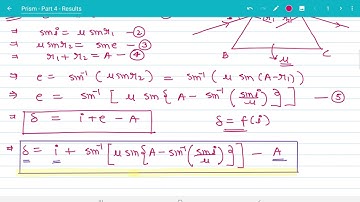 Prism - Part 4 - Results
⇒ sin i = μ sin r₁ — ②
⇒ μ sin r₂ = sin e — ③
⇒ r₁ + r₂ = A — ④
B C
μ
⇒ e = sin⁻¹ (μ sin r₂) = sin⁻¹ (μ sin (A - r₁))
⇒ e = sin⁻¹ [ μ sin { A - sin⁻¹ (sin i / μ) } ] — ⑤
⇒ δ = i + e - A δ = f(i)
⇒ δ = i + sin⁻¹ [ μ sin { A - sin⁻¹ (sin i / μ) } ] - A